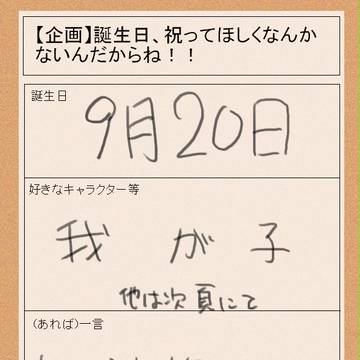 【企画】誕生日、祝ってほしくなんか
ないんだからね！！
誕生日
9月20日
好きなキャラクター等
我が子
他は次頁にて
(あれば)一言